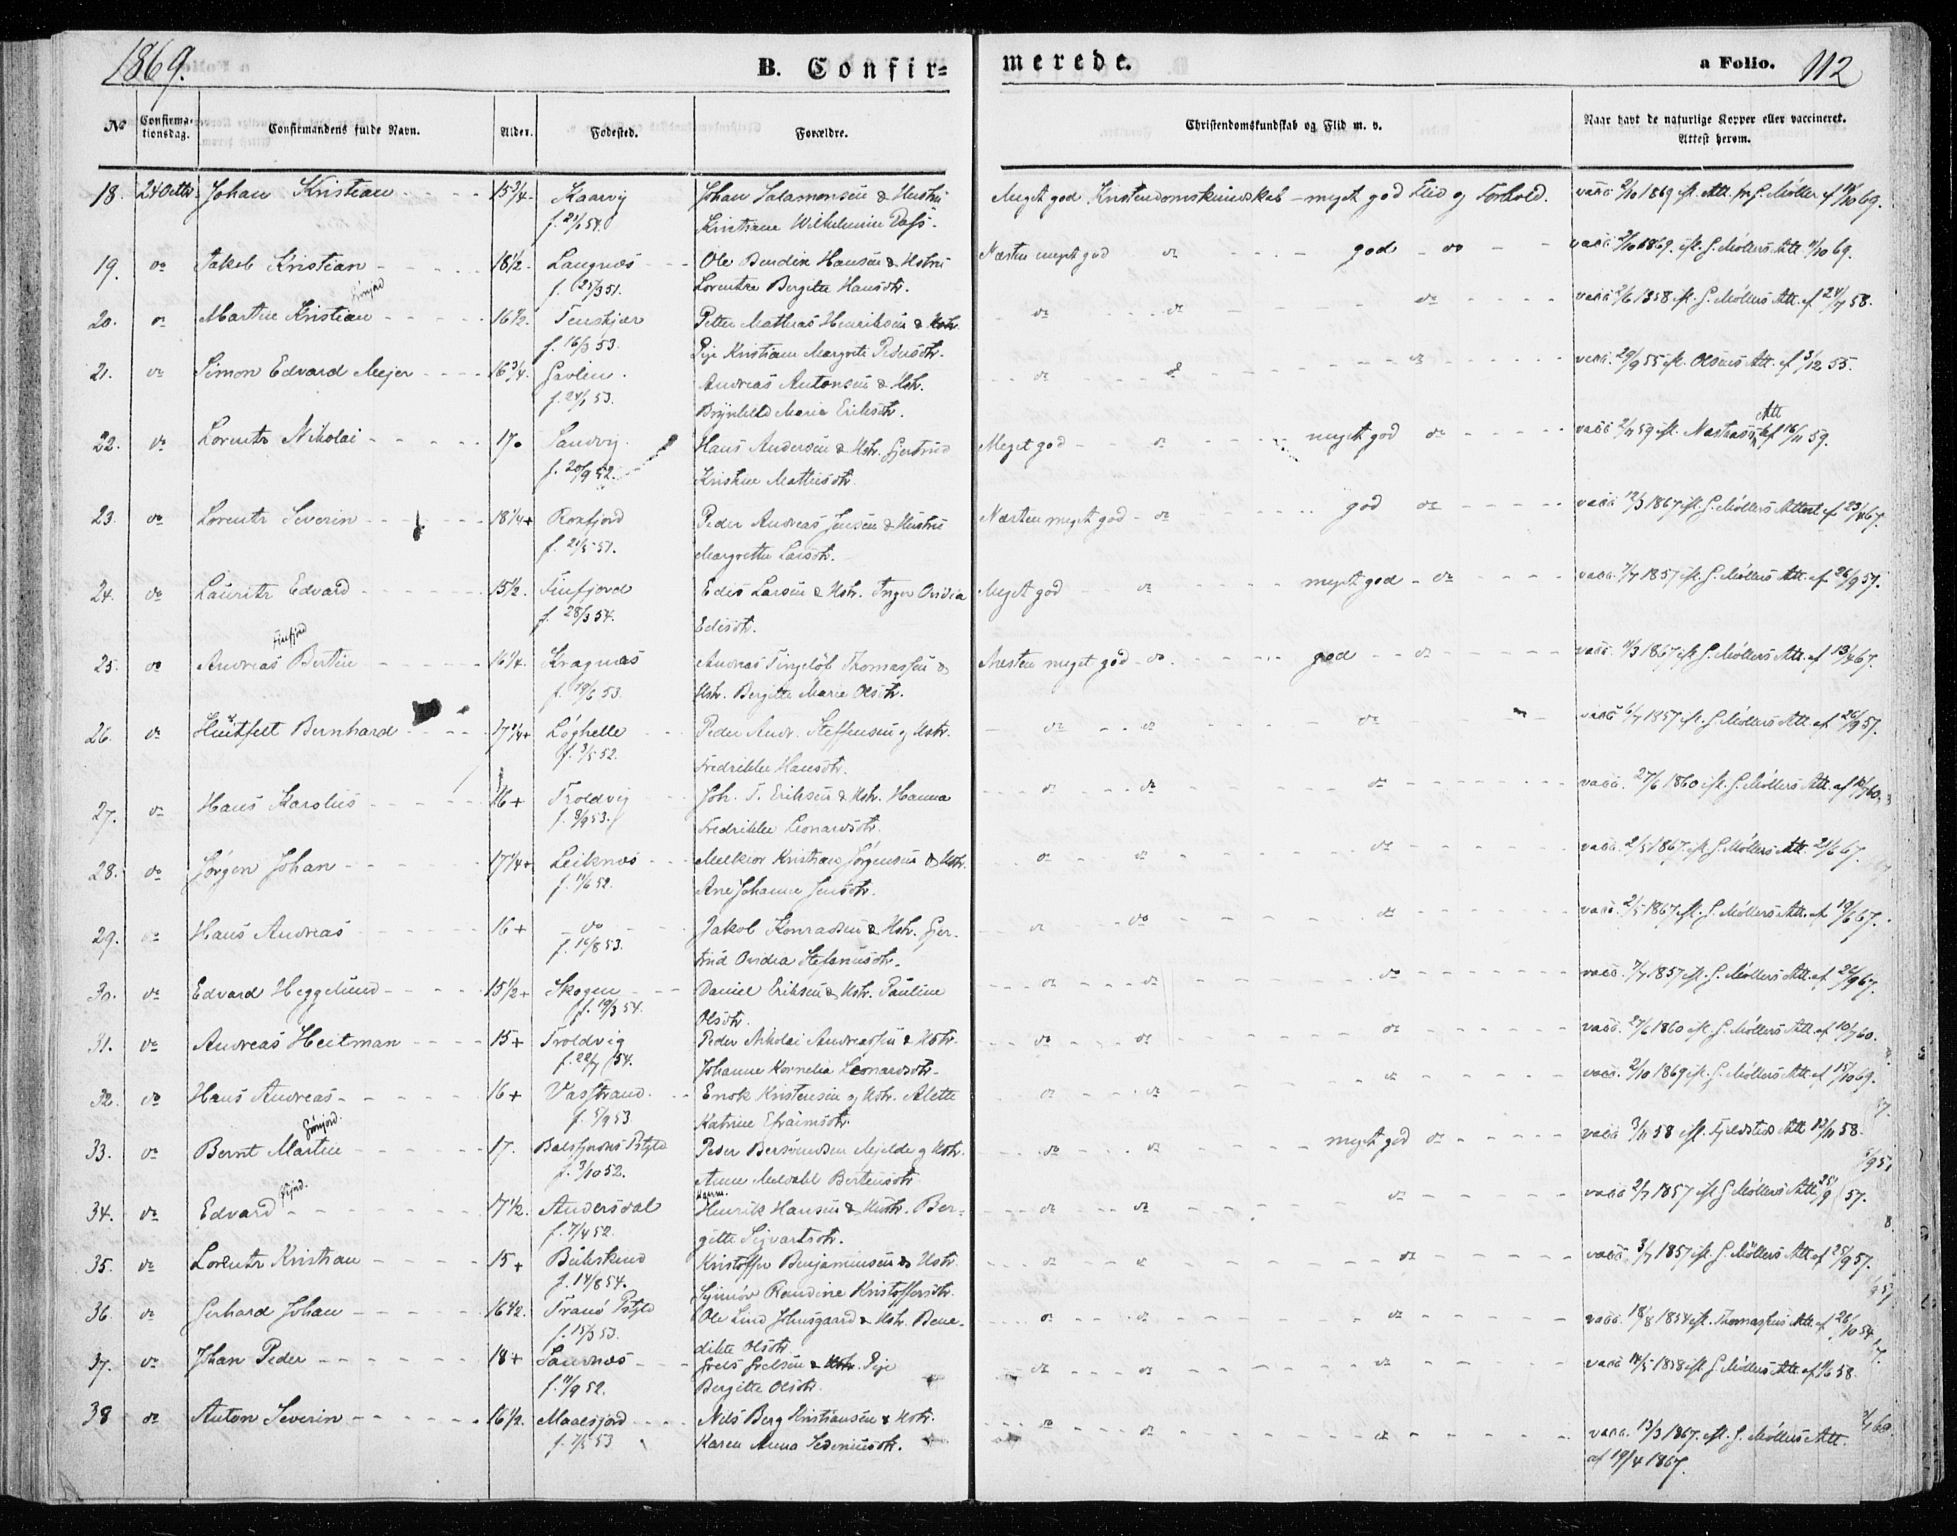 1869.
B. Confir=
merede.
a Folio. 112
No Confirma-tionsdag. Confirmandens fulde Navn. Alder. Fødested. Forældre. Christendomskundskab og Flid m. v. Naar havt de naturlige Kopper eller vaccineret. Attest herom.
18. 24 Octbr Johan Kristian 15 3/4 Kaarvig Johan Salamonsen & Hustru Meget god Kristendomskundskab – meget god Flid og Forhold. vacc. 2/10 1869 ifl. Att. fra G. Møller af
Kristiane Wilhelmine Dass.
19. do Jakob Kristian 18 1/2 Langnæs Ole Bendix Hansen & Hstru Næsten meget god do god do vacc. 1869. ifl. G. Møllers Att.
f. 25/3 51. Lorentze Bergitte Hansdtr.
20. do Martin Kristian 16 1/2 Tenskjær Petter Mathias Henriksen & Hstr. do do do vacc. 2/6 1858 ifl. G. Møllers Att. af 24/7 58.
f. 16/3 53. Pije Kristiane Margrete Pedersdtr.
21. do Simon Edvard Mejer 16 3/4 Gavlen. Andreas Antonsen & Hstr. do do do vacc. 29/9 55 ifl. Olsens Att. af 3/12 55.
f. 24/1 53. Brynhild Maria Eriksdtr.
22. do Lorentz Nikolai 17. Sandvig. Hans Andersen & Hstr. Gjertrud Meget god do meget god do vacc. 59 ifl. Att af 16/11 59.
f. 20/9 52. Kristine Mathisdtr.
23. do Lorentz Severin 18 1/4 + Rossfjord Peder Andreas Jensen & Hustru Næsten meget god do god do vacc. 12/3 1867 ifl. G. Møllers Attest af 67.
f. 21/5 51. Margrethe Larsdtr.
24. do Lauritz Edvard 15 1/2. Finfjord Edis Larsen & Hstr. Inger Ovidia Meget god do meget god do vacc. 7/7 1857 ifl. G. Møllers Att. af 26/9 57.
f. 28/3 54. Edisdtr.
Finfjord
25. do Andreas Bertin 16 1/4. Kragnæs Andreas Thomassen & Næsten meget god do god do vacc. 1867 ifl. G. Møllers Att. af 13/4 67.
f. 19/6 53. Hstr. Bergitte Marie Olsdtr.
26. do Huitfelt Bernhard 17 1/4 + Løghelle Peder Andr. Steffensen og Hstr. do do do vacc. 6/7 1857 ifl. G. Møllers Att. af 26/9 57.
f. 3/5 52. Fredrikke Hansdtr.
27. do Hans Karolus 16 + Troldvig Joh. T. Eriksen & Hstr. Hanna do do do vacc. 27/6 1860 ifl. G. Møllers Att. af
f. 8/9 53. Fredrikke Leonardsdtr.
28. do Jørgen Johan 17 1/4 + Leiknæs Melkior Kristian Jørgensen & Hstr. do do do vacc. 2/5 1867 ifl. G. Møllers Att. 21/6 67.
f. 11/6 52. Ane Johanne Jensdtr.
29. do Hans Andreas 16 + do Jakob Konradsen & Hstr. Gjer- do do do vacc. 2/5 1867 ifl. G. Møllers Att. af 19/6 67.
f. 16/8 53. trud Ovidia Stefanusdtr.
30. do Edvard Heggelund 15 1/2 + Skogen Daniel Eriksen & Hstr. Pauline do do do vacc. 7/7 1857 ifl. G. Møllers Att. af
f. 19/3 54. Olsdtr.
31. do Andreas Heitman 15 + Troldvig Peder Nikolai Andreassen & Hstr. do do do vacc. 27/6 1860 ifl. G. Møllers Att. af 10/7 60.
f. 22/7 54. Johanne Kornelia Leonardsdtr.
32. do Hans Andreas 16 + Vasstrand. Enok Kristensen og Hstr. Alette do do do vacc. 2/10 1869 ifl. G. Møllers Att. af 15/10 69.
f. 5/9 53 Katrine Efraimsdtr.
33. do Bernt Martin 17. Balsfjordens Pstgld Peder Berntsen Mjelde og Hstr. do do meget god do vacc. 3/11 58 ifl. Fjeldsteds Att 12/11 58.
f. 3/10 52. Anne Berteusdtr.
34. do Edvard 17 1/2. Andersdal Henrik Hansen & Hustr. Ber- do do do vacc. 2/7 1857 ifl. G. Møllers Att. 25/9 57.
f. 7/4 52. gitte Sigvartsdtr.
35. do Lorentz Kristian 15 + Kristoffer Benjaminsen & Hstr. do do do vacc. 3/7 1857 ifl. G. Møllers Att. af 25/9 57.
f. 14/8 54. Synnøv Randine Kristoffersdtr.
36. do Gerhard Johan 16 1/2. Tranø Pstgld Ole Lind & Hstr. Bene- do do do vacc. 18/8 1854 ifl. Thomassens Att. af 26/10 54
f. 15/3 53. dikte Olsdtr.
37. do Johan Peder 18 + & Hstr. Pije do do do vacc. 14/5 1858 ifl. G. Møllers Att. af 58.
f. 11/9 52. Bergitte Olsdtr.
38 do Anton Severin 16 1/2. Maalsjord Nils Berg Kristiansen & Hstr. do do do vacc. 13/3 1867. ifl. G. Møllers Att.
f. 1/5 53 Karen Anna Sedeniusdtr. af 19/4 1867.